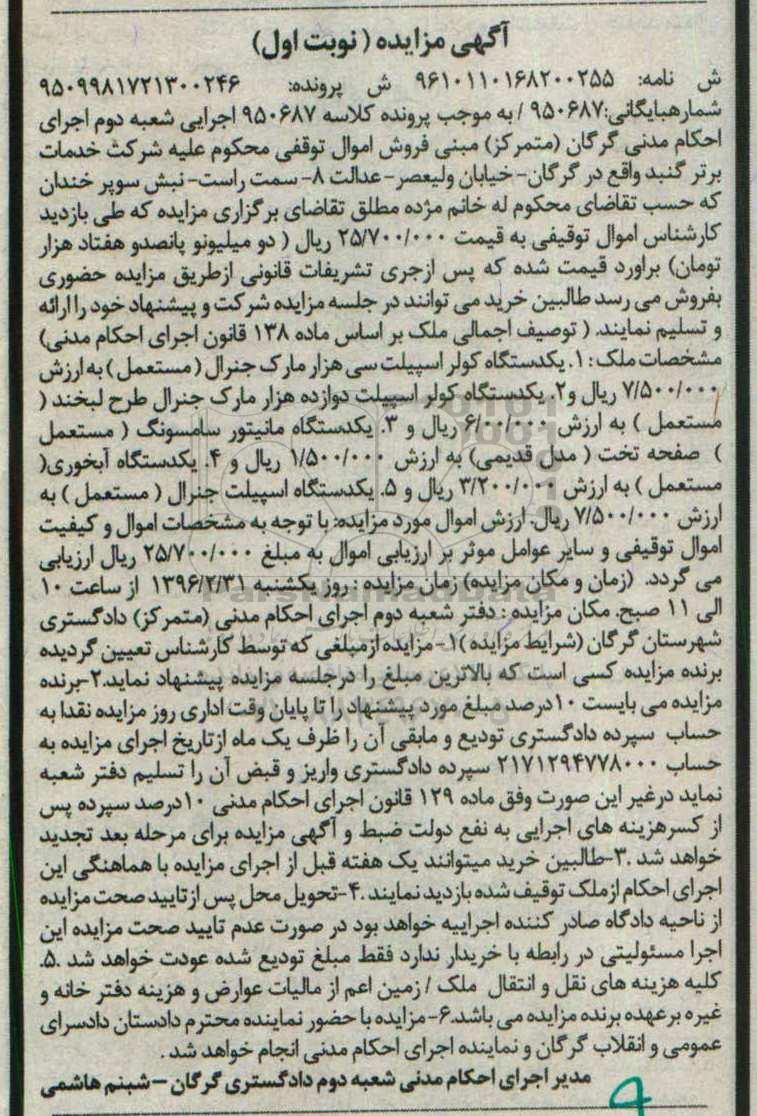 آگهی مزایده (نوبت اول)
ش نامه: ۹۶۱۰۱۱۰۱۶۸۲۰۰۲۵۵ ش پرونده: ۹۵۰۹۹۸۱۷۲۱۳۰۰۲۴۶
شمارهبایگانی:۹۵۰۶۸۷ / به موجب پرونده کلاسه ۹۵۰۶۸۷ اجرایی شعبه دوم اجرای
احکام مدنی گرگان (متمرکز) مبنی فروش اموال توقفی محکوم علیه شرکث خدمات
برتر گنبد واقع در گرگان- خیابان ولیعصر- عدالت ۸- سمت راست- نبش سوپر خندان
که حسب تقاضای محکوم له خانم مژده مطلق تقاضای برگزاری مزایده که طی بازدید
کارشناس اموال توقیفی به قیمت ۲۵/۷۰۰/۰۰۰ ریال ( دو میلیونو پانصدو هفتاد هزار
تومان) براورد قیمت شده که پس ازجری تشریفات قانونی ازطریق مزایده حضوری
بفروش می رسد طالبین خرید می توانند در جلسه مزایده شرکت و پیشنهاد خود را ارائه
و تسلیم نمایند. ( توصیف اجمالی ملک بر اساس ماده ۱۳۸ قانون اجرای احکام مدنی)
مشخصات ملک : ۱. یکدستگاه کولر اسپیلت سی هزار مارک جنرال ( مستعمل ) به ارزش
۷/۵۰۰/۰۰۰ ریال و۲. یکدستگاه کولر اسپیلت دوازده هزار مارک جنرال طرح لبخند (
مستعمل ) به ارزش ۶/۰۰۰/۰۰۰ ریال و ۳. یکدستگاه مانیتور سامسونگ ( مستعمل
) صفحه تخت ( مدل قدیمی) به ارزش ۱/۵۰۰/۰۰۰ ریال و ۴. یکدستگاه آبخوری(
مستعمل ) به ارزش ۳/۲۰۰/۰۰۰ ریال و ۵. یکدستگاه اسپیلت جنرال ( مستعمل ) به
ارزش ۷/۵۰۰/۰۰۰ ریال. ارزش اموال مورد مزایده: با توجه به مشخصات اموال و کیفیت
اموال توقیفی و سایر عوامل موثر بر ارزیابی اموال به مبلغ ۲۵/۷۰۰/۰۰۰ ریال ارزیابی
می گردد. (زمان و مکان مزایده) زمان مزایده : روز یکشنبه ۱۳۹۶/۲/۳۱ از ساعت ۱۰
الی ۱۱ صبح. مکان مزایده : دفتر شعبه دوم اجرای احکام مدنی (متمرکز) دادگستری
شهرستان گرگان (شرایط مزایده )۱- مزایده ازمبلغی که توسط کارشناس تعیین گردیده
برنده مزایده کسی است که بالاترین مبلغ را درجلسه مزایده پیشنهاد نماید.۲-برنده
مزایده می بایست ۱۰درصد مبلغ مورد پیشنهاد را تا پایان وقت اداری روز مزایده نقدا به
حساب سپرده دادگستری تودیع و مابقی آن را ظرف یک ماه ازتاریخ اجرای مزایده به
حساب ۲۱۷۱۲۹۴۷۷۸۰۰۰ سپرده دادگستری واریز و قبض آن را تسلیم دفتر شعبه
نماید درغیر این صورت وفق ماده ۱۲۹ قانون اجرای احکام مدنی ۱۰درصد سپرده پس
از کسرهزینه های اجرایی به نفع دولت ضبط و آگهی مزایده برای مرحله بعد تجدید
خواهد شد .۳-طالبین خرید میتوانند یک هفته قبل از اجرای مزایده با هماهنگی این
اجرای احکام ازملک توقیف شده بازدید نمایند .۴-تحویل محل پس ازتایید صحت مزایده
از ناحیه دادگاه صادر کننده اجراییه خواهد بود در صورت عدم تایید صحت مزایده این
اجرا مسئولیتی در رابطه با خریدار ندارد فقط مبلغ تودیع شده عودت خواهد شد .۵.
کلیه هزینه های نقل و انتقال ملک / زمین اعم از مالیات عوارض و هزینه دفتر خانه و
غیره برعهده برنده مزایده می باشد.۶- مزایده با حضور نماینده محترم دادستان دادسرای
عمومی و انقلاب گرگان و نماینده اجرای احکام مدنی انجام خواهد شد .
مدیر اجرای احکام مدنی شعبه دوم دادگستری گرگان – شبنم هاشمی
۹